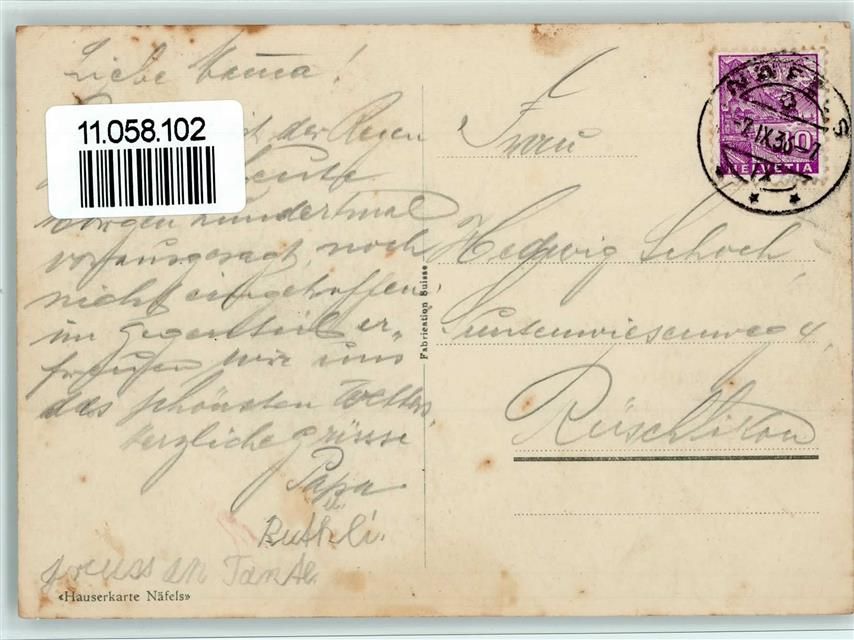 Liebe Mama!
11.058.102
ist der Regen
heute
Morgen hundertmal
vorausgesagt, noch
nicht eingetroffen,
im Gegenteil er-
freuen wir uns
das schönsten Wetters,
Herzliche Grüsse
Papa
Ruthli.
Gruss an Tante.
«Hauserkarte Näfels»
Fabrication Suisse
Frau
Hedwig Schoch
4,
Rüschlikon
NÄFELS
IX.36
10
HELVETIA